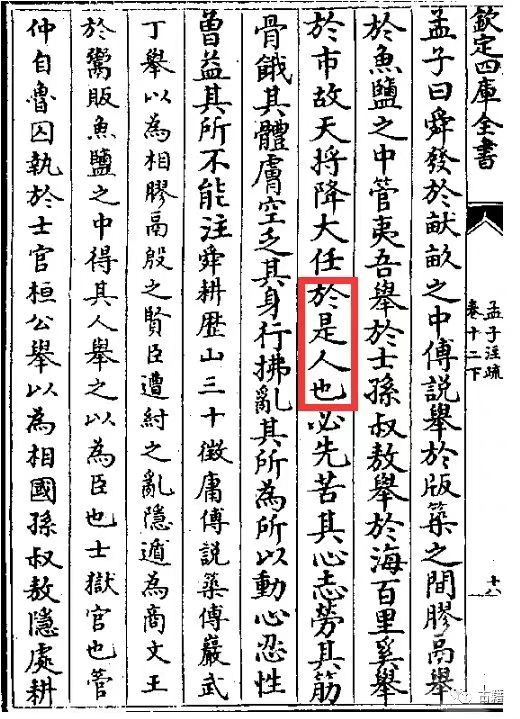 欽定四庫全書
孟子注疏
卷十二下
十八
孟子曰舜發於畎畝之中傅説舉於版築之間膠鬲舉
於魚鹽之中管夷吾舉於士孫叔敖舉於海百里奚舉
於市故天將降大任於是人也必先苦其心志勞其筋
骨餓其體膚空乏其身行拂亂其所為所以動心忍性
曾益其所不能注舜耕歴山三十徵庸傅説築傅巖武
丁舉以為相膠鬲殷之賢臣遭紂之亂隱遁為商文王
於鬻販魚鹽之中得其人舉之以為臣也士獄官也管
仲自魯囚執於士官桓公舉以為相國孫叔敖隱處耕
古籍